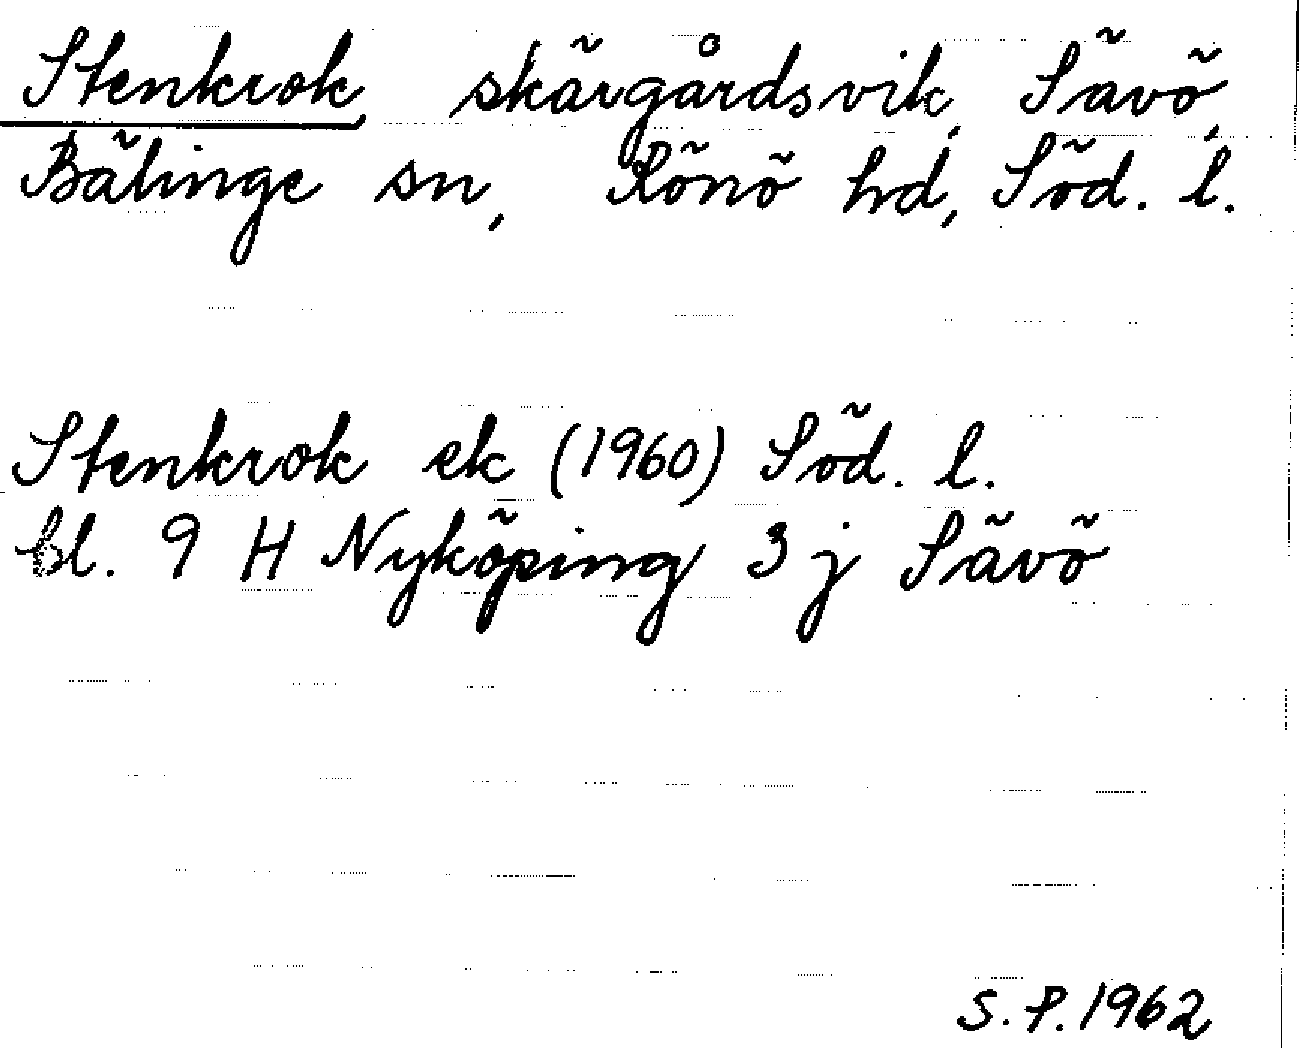 Stenkrok, skärgårdsvik, Sävö,
Bälinge sn, Rönö hd, Söd. l.
Stenkrok ek (1960) Söd. l.
bl. 9 H Nyköping 3 j Sävö
S. P. 1962